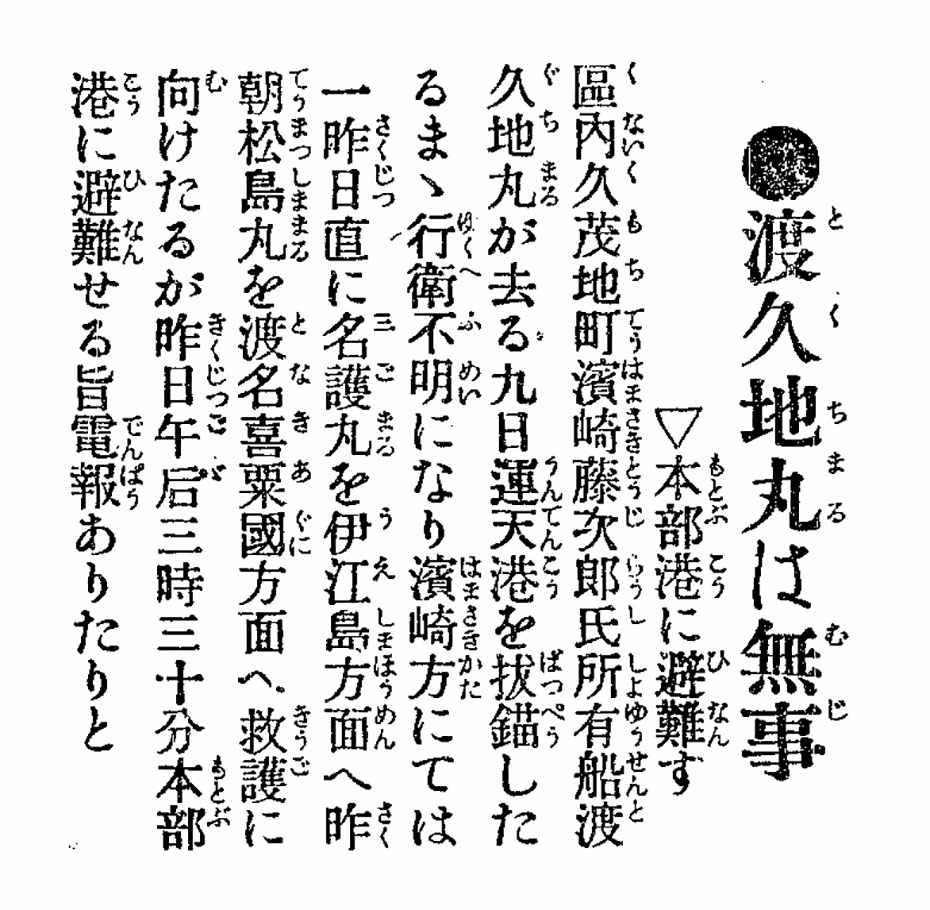 ●渡久地丸は無事
▽本部港に避難す
區内久茂地町濱崎藤次郎氏所有船渡
久地丸が去る九日運天港を拔錨した
るまゝ行衛不明になり濱崎方にては
一昨日直に名護丸を伊江島方面へ昨
朝松島丸を渡名喜粟國方面へ救護に
向けたるが昨日午后三時三十分本部
港に避難せる旨電報ありたりと